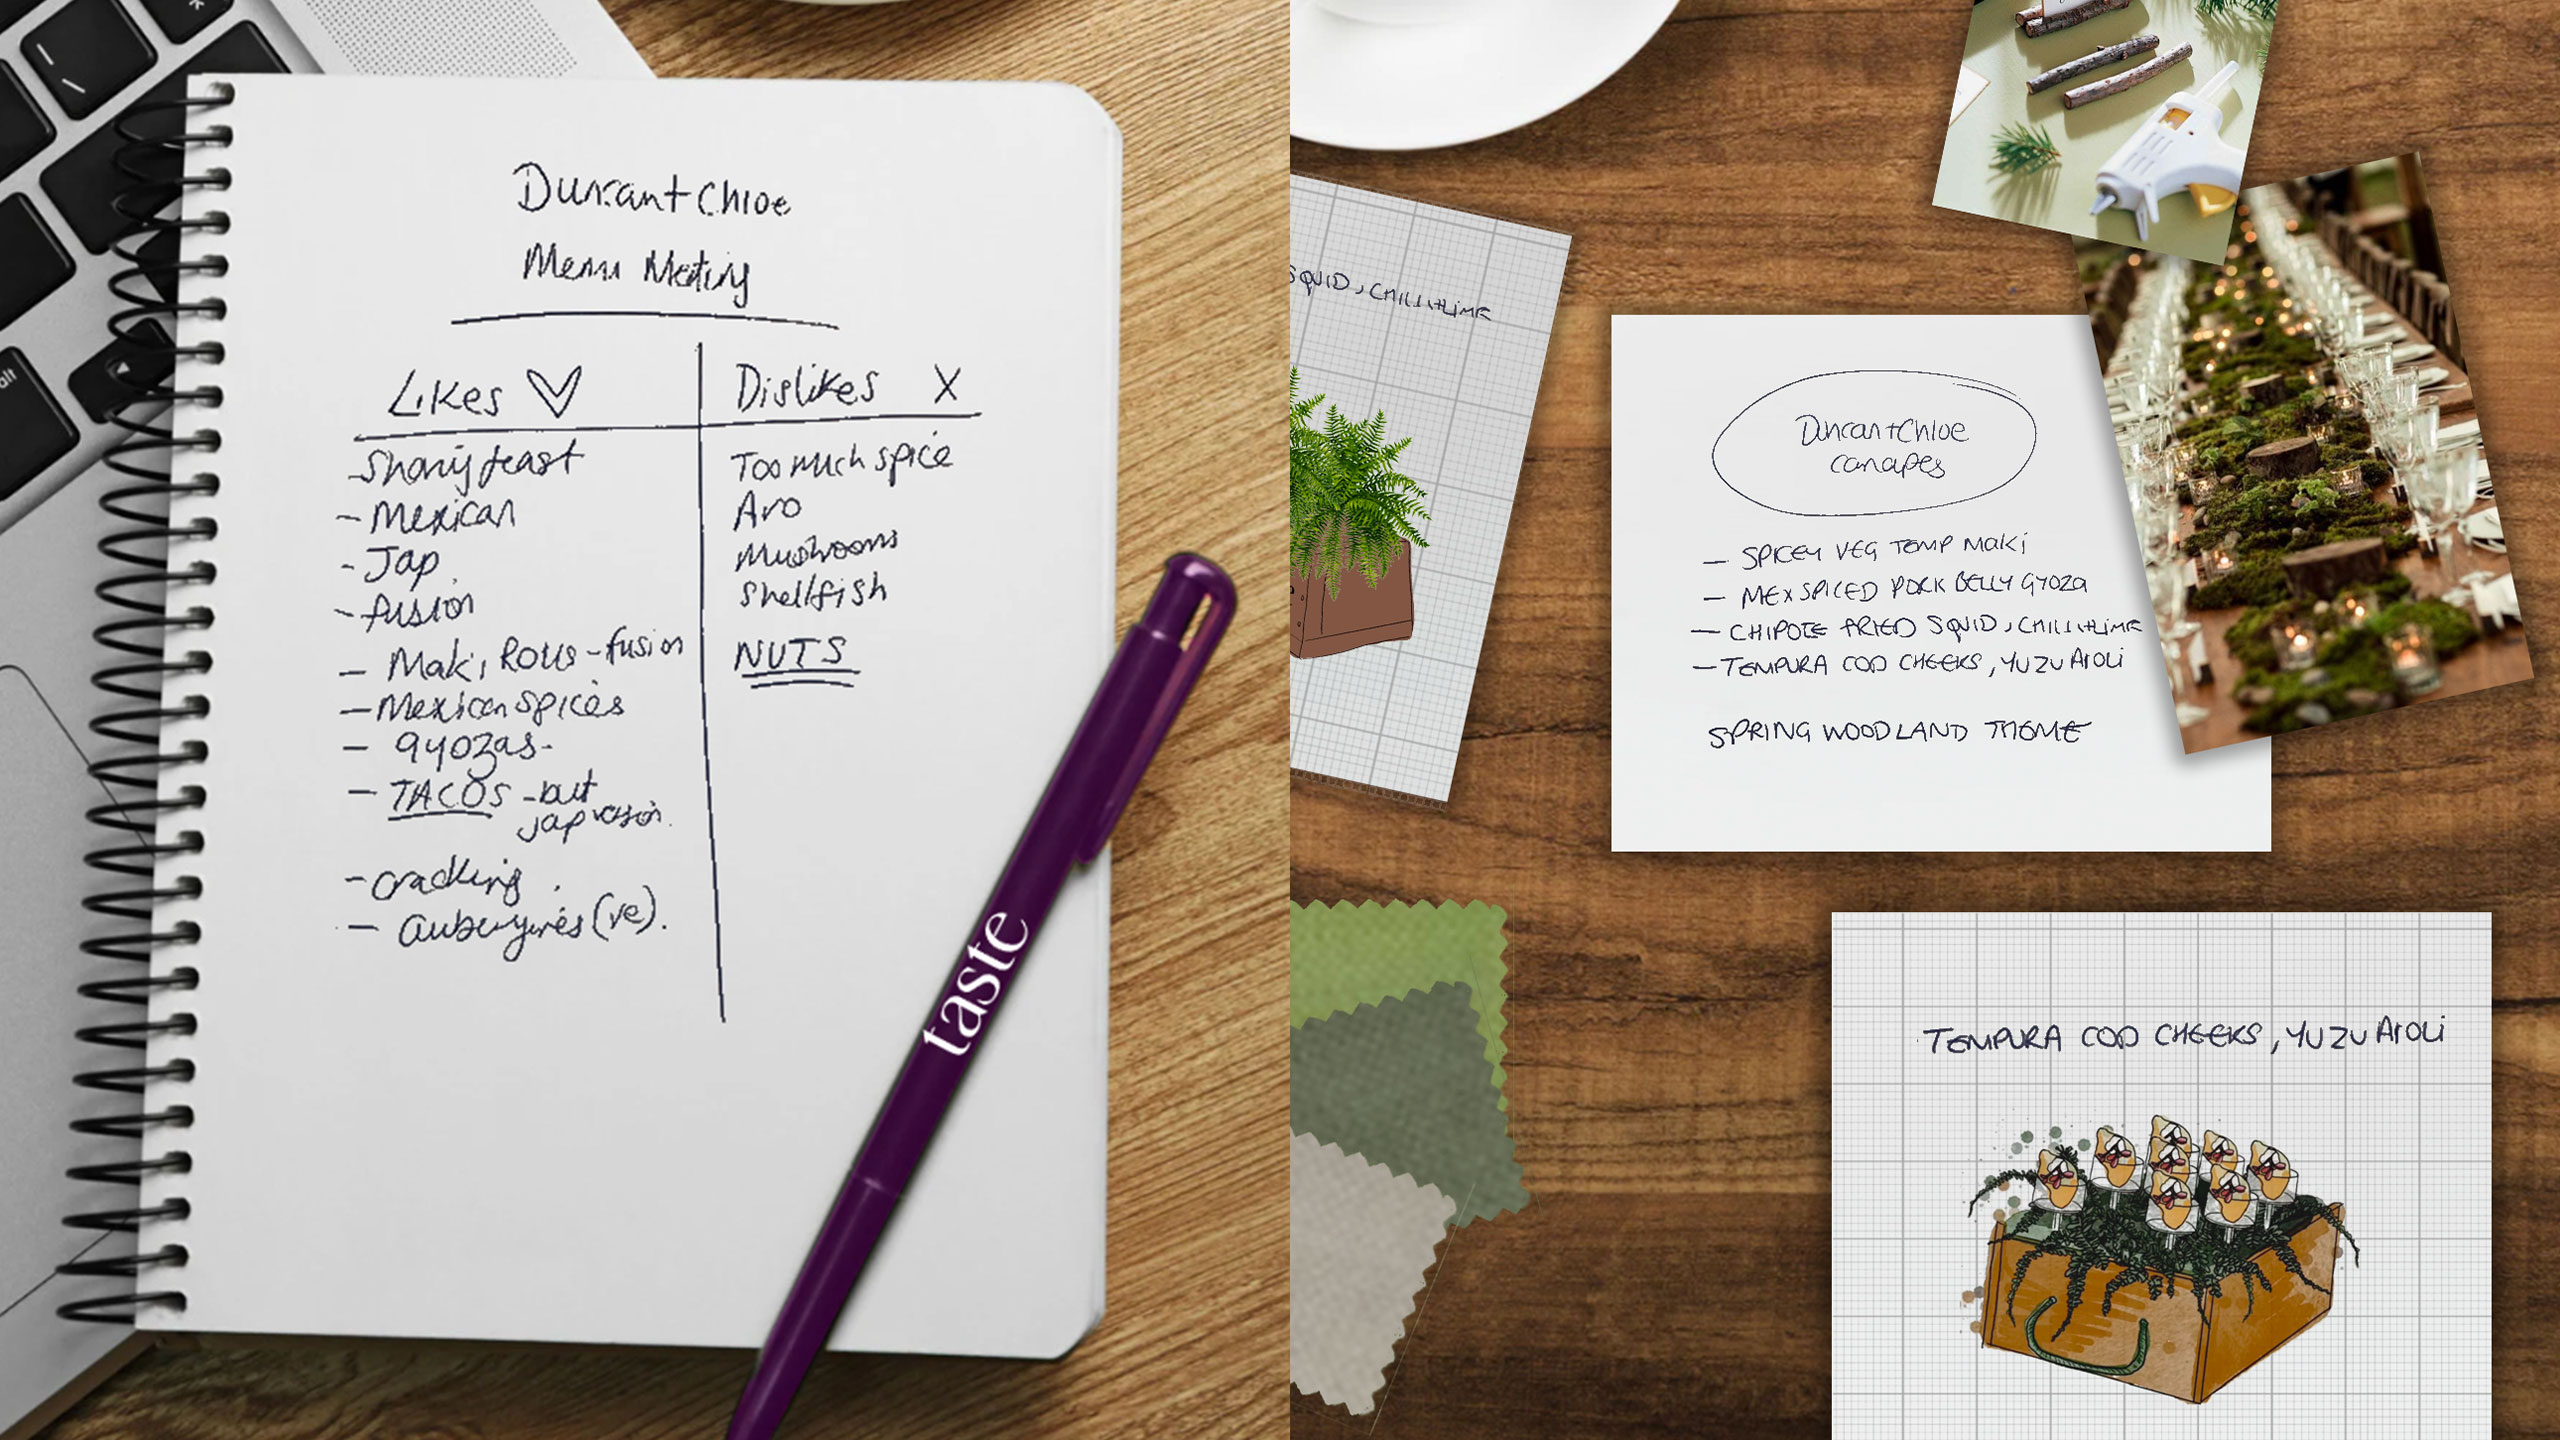 Duncan+Chloe
Menu Meeting
Likes
Sharing feast
- Mexican
- Jap
- fusion
- Maki Rolls - fusion
- Mexican spices
- gyozas -
- TACOS - but
Jap version.
- crackling
- Aubergines (ve).
Dislikes X
Too much spice
Avo
Mushrooms
Shellfish
NUTS
taste
alt
SQUID, CHILLI+LIME
Duncan+Chloe
canapes
- SPICEY VEG TEMP MAKi
- MEX SPICED PORK BELLY GYOZA
- CHIPOTE FRIED SQUID, CHILLI+LIME
- TEMPURA COD CHEEKS, YUZU AIOLi
SPRING WOODLAND THEME
TEMPURA COD CHEEKS, YUZU AIOLi